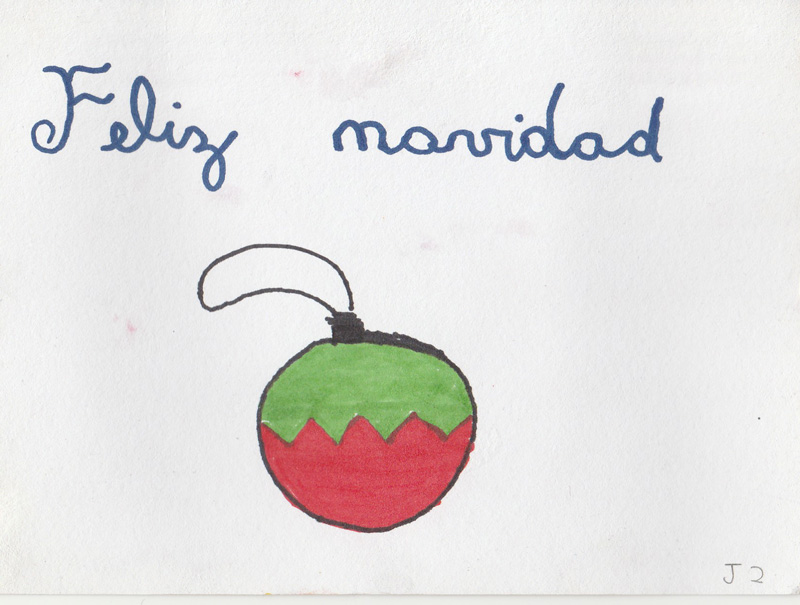 Feliz navidad
J 2